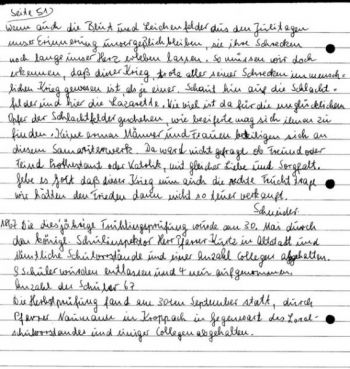 Seite 51)
Wenn auch die Blut und Leichenfelder aus den Julitagen
unserer Erinnerung unvergeßlich bleiben, sie ihre Schrecken
noch lange unser Herz erleben lassen. So müssen wir doch
erkennen, daß dieser Krieg, trotz aller seiner Schrecken ein mensch-
lichen Krieg gewesen ist als je einer. Schaut hin auf die Schlacht-
felder und hier die Lazarette. Wie viel ist da für die unglücklichen
Opfer der Schlachtfelder geschehen, wie heute mag sich ihnen zu
finden. Keine armas Männer und Frauen beteiligen sich an
diesem Samariterwerk. Da ward nicht gefragt ob Freund oder
Feind Protestant oder Katolik, mit gleicher Liebe und Sorgfalt.
Gebe es Gott daß dieser Krieg nun auch die rechte Frucht trage
wir hätten den Frieden dann nicht so teuer verkauft.
Schneider.
1867 Die diesjährige Frühlingsprüfung wurde am 30. Mai durch
das königl. Schulinspektor Herr Pfarrer Kurtz in Altstatt und
sämtliche Schulvorstände und einer Anzahl Collegen abgehalten.
9 Schüler wurden entlassen und 4 neu aufgenommen.
Anzahl der Schüler 67
Die Herbstprüfung fand am 30ten September statt, durch
Pfarrer Naumann in Kroppach in Gegenwart des Local-
schulvorstandes und einiger Collegen abgehalten.